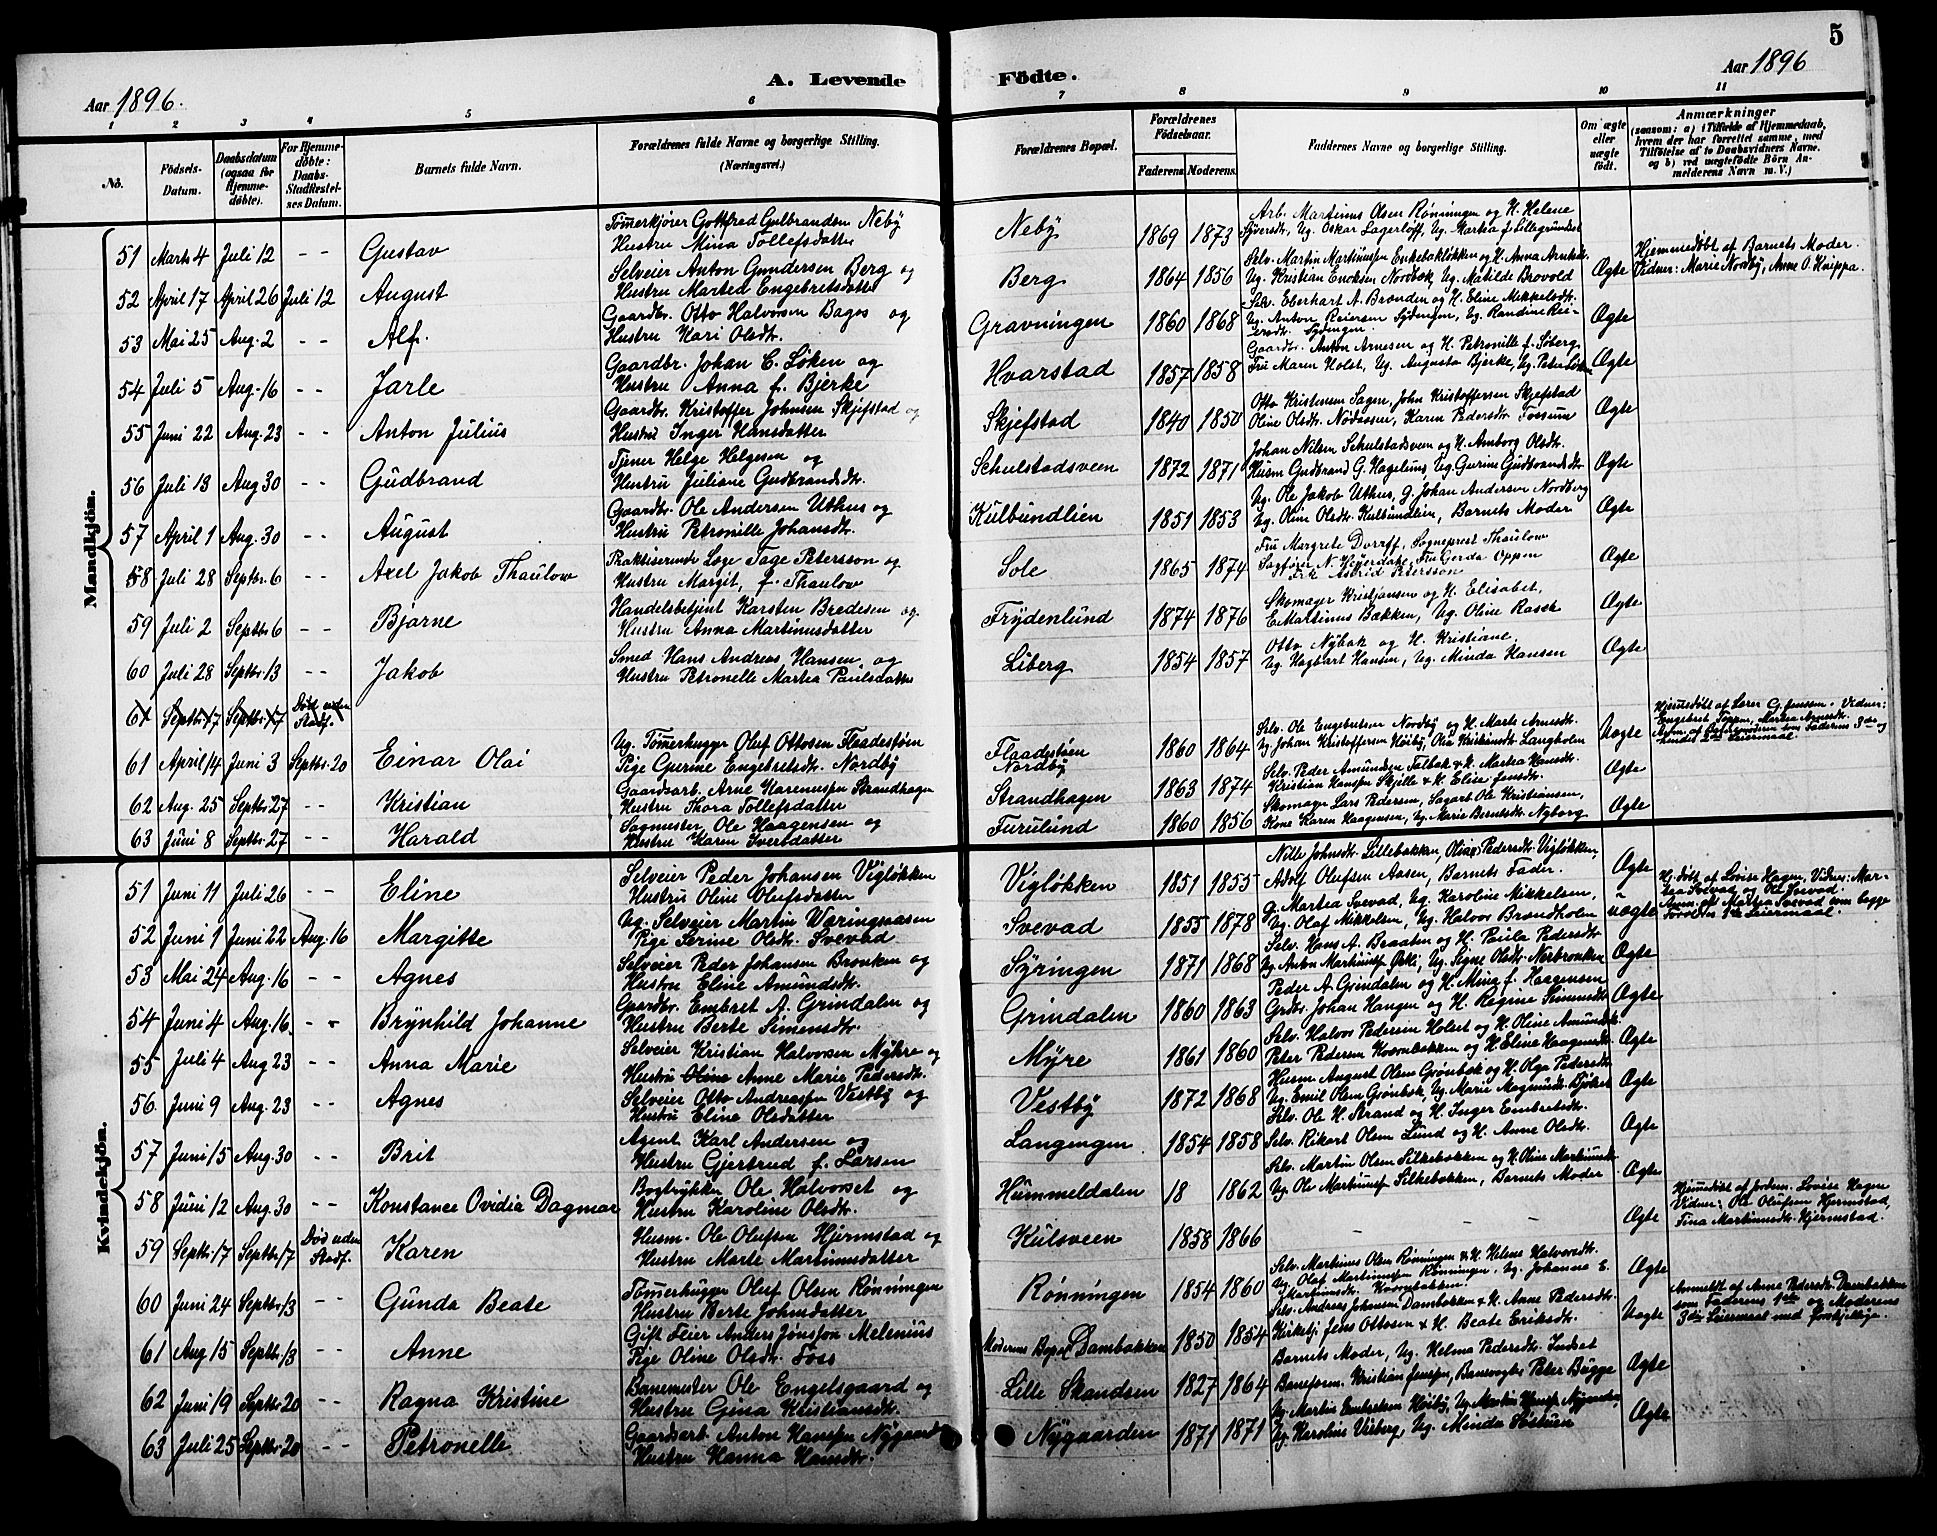 5
A. Levende Födte.
Aar 1896.
Aar 1896
1 2 3 4 5 6 7 8 9 10 11
No.
Födsels-Datum.
Daabsdatum (ogsaa for Hjemmedöbte).
For Hjemmedöbte: Daabs-Stadfæstelses Datum.
Barnets fulde Navn.
Forældrenes fulde Navne og borgerlige Stilling. (Næringsvei.)
Forældrenes Bopæl.
Forældrenes Födselsaar.
Faderens. Moderens.
Faddernes Navne og borgerlige Stilling.
Om ægte eller uægte födt.
Anmærkninger
(saasom: a) i Tilfælde af Hjemmedaab, hvem der har forrettet samme, med Tilföielse af to Daabsvidners Navne. og b) ved uægtefödte Börn Anmelderens Navn m. V.)
Mandkjön.
51 Marts 4 Juli 12 - - Gustav
Tömerkjörer Gottfred Gulbrandsen Neby
Hustru Mina Tollefsdatter
Neby 1869 1873
Arb. Martinus Olsen Rönningen og H. Helene
Syversdt., Ug. Oskar Lagerlöff, Ug. Martea f. Lillegrundset
52 April 17 April 26 Juli 12 August
Selveier Anton Gundersen Berg og
Hustru Martea Engebretsdatter
Berg 1864 1856
Selv. Martin Martinusen Enkebakløkken og H. Anna Arnesdt.
Ug. Kristian Ericksen Nordbæk, Ug. Matilde Brovold
Ægte
Hjemmedöbt af Barnets Moder.
Vidner: Marie Nordby, Anne O. Knippa.
53 Mai 25 Aug. 2 - - Alf.
Gaardbr. Otto Halvorsen Bagos og
Hustru Kari Olsdtr.
Gravningen 1860 1868
Selv. Eberhart A. Brænden og H. Eline Mikkelsdt.
Ug. Anton Reiersen Sydengen, Ug. Randine Rei-
ersdt. Sydengen.
Ægte
54 Juli 5 Aug. 16 - - Jarle
Gaardbr. Johan C. Löken og
Hustru Anna f. Bjerke
Hvarstad 1857 1858
Gaardbr. Anton Arnesen og H. Petronille f. Söberg,
Fru Maren Holst, Ug. Augusta Bjerke, Ug. Peter Löken
Ægte
55 Juni 22 Aug. 23 - - Anton Julius
Gaardbr. Kristoffer Johnsen Skjefstad og
Hustru Inger Hansdatter
Skjefstad 1840 1850
Otto Kristensen Sagen, John Kristoffersen Skjefstad
Oline Olsdt. Nodaasen, Karen Pedersdt. Fossum
Ægte
56 Juli 13 Aug 30 - - Gudbrand
Tjener Helge Helgesen og
Hustru Juliane Gudbrandsdt.
Schulstadsveen 1872 1871
Johan Nilsen Schulstadsveen og H. Amborg Olsdt.
Husm Gudbrand G. Hagelund, Ug. Gurine Gudbrandsdt
Ægte
57 April 1 Aug. 30 - - August
Gaardbr. Ole Andersen Uthus og
Hustru Petronille Johansdt.
Kulbundlien 1851 1853
Ug. Ole Jakob Uthus, G. Johan Andersen Nordberg
Ug. Oline Olsdt. Kulbundlien, Barnets Moder
Ægte
58 Juli 28 Septbr. 6 - - Axel Jakob Thaulow
Praktiserende Læge Tage Petersson og
Hustru Margit, f. Thaulow
Sole 1865 1874
Fru Margrete Dorrff, Sogneprest Thaulow
Sagförer N. Heyerdahl, Fru Gerda Oppen
Frk Astrid Petersson
Ægte
59 Juli 2 Septbr 6 - - Bjarne
Handelsbetjent Karsten Bredesen og
Hustru Anna Martinusdatter
Frydenlund 1874 1876
Skomager Kristjansen og H. Elisabet,
E. Martinus Bækken, Ug. Oline Rasch
Ægte
60 Juli 28 Septbr 13 - - Jakob
Smed Hans Andreas Hansen og
Hustru Petronelle Martea Paulsdatter
Liberg 1854 1857
Otto Nybak og H. Kristiane,
Ug. Hagbart Hansen, Ug. Minda Hansen
Ægte
61 Septbr 17 Septbr 17 Död uden Stadf.
61 April 14 Juni 3 Septbr. 20 Einar Olai
Ug. Tömerhugger Oluf Ottosen Flaadestöen
Pige Gurine Engebretsdt. Nordby
Flaadestöen
Nordby
1860 1864
Selv. Ole Engebretsen Nordby og H. Marte Arnesdt.
Ug. Johan Kristoffersen Höiby, Olia Kristiansdt. Langholm
Uægte
Hjemmedöbt af Lærer G. Jenssen. Vidner:
Engebret Toppen, Martea Arnesdt.
62 Aug. 25 Septbr. 27 - - Kristian
Gaardsarb. Arne Karenusen Strandhagen
Hustru Thora Tollefsdatter
Strandhagen 1863 1874
Selv. Peder Amundsen Talbak & H. Martea Hansdt.
Kristian Hansen Skjelle & H. Elise Jensdt.
Ægte
63 Juni 8 Septbr. 27 - - Harald
Sagmester Ole Haagensen og
Hustru Karen Iversdatter
Furulund 1860 1856
Skomager Lars Pedersen, Sagarb. Ole Kristiansen,
Kone Karen Haagensen, Ug. Marie Berntsdt. Nyborg
Ægte
Kvindekjön.
51 Juni 11 Juli 26 - - Eline
Selveier Peder Johansen Viglökken
Hustru Oline Olufsdatter
Viglökken 1851 1855
Nille Johnsdt. Lillebakken, Oline Pedersdt. Viglökken,
Adolf Olufsen Aasen, Barnets Fader.
Ægte
52 Juni 1 Juni 22 Aug. 16 Margitte
Ug. Selveier Martin Væringsaasen
Pige Serine Olsdt. Svevad
Svevad 1855 1878
G. Martea Svevad, Ug. Karoline Mikkelsen,
Ug. Olaf Mikkelsen, Ug. Halvor Brændholm
uægte
Hj. döbt af Lovise Hagen, Vidner: Mar-
tea Svevad og Ole Svevad.
Anm. af Martea Svevad som begge
Foræl. 1ste Leiermaal.
53 Mai 24 Aug. 16 - - Agnes
Selveier Peder Johansen Bronken og
Hustru Eline Amundsdt.
Syringen 1871 1868
Selv. Hans A. Braaten og H. Paula Pedersdt.
Ug. Anton Martinusen Økli, Ug. Signe Olsdt. Norbronken
Ægte
54 Juni 4 Aug. 16 - - Brynhild Johanne
Gaardbr. Embret A. Grindalen og
Hustru Berte Simensdt.
Grindalen 1860 1863
Peder A. Grindalen og H. Mina f. Haagensen
Grdbr. Johan Hangen og H. Ragna Simensdt.
Ægte
55 Juli 4 Aug 23 - - Anna Marie
Selveier Kristian Halvorsen Myhre og
Hustru Oline Anne Marie Pedersdt.
Myre 1861 1860
Selv. Halvor Pedersen Holset og H. Oline Amundsdt.
Peter Pedersen Kværnbakken og H. Eline Haagensdt
Ægte
56. Juni 9 Aug. 23 - - Agnes
Selveier Otto Andreassen Vestby og
Hustru Eline Olsdatter
Vestby 1872 1868
Husm. August Olsen Grönbek og H. Olga Pedersdt
Ug. Emil Olsen Grönbek, Ug. Marie Magnusdt. Björset
Ægte
57 Juni 15 Aug. 30 - - Brit
Agent Karl Andersen og
Hustru Gjertrud f. Larsen
Langengen 1854 1858
Selv. Ole H. Strand og H. Inger Embretsdt.
Selv. Rikart Olsen Lund og H. Anne Olsdt.
Ægte
58 Juni 12 Aug. 30 - - Konstance Ovidia Dagmar
Bogtrykker Ole Halvorset og
Hustru Karoline Olsdt.
Hummeldalen 18 1862
Selv. Martin Olsen Silkebækken og H. Oline Martinusdt
Ug. Ole Martinusen Silkebækken, Barnets Moder
Ægte
59 Septbr. 17 Septbr 17 Död uden Stadf. Karen
Husm. Ole Olufsen Hjermstad og
Hustru Marte Martinusdatter
Kulsveen 1858 1866
- - - -
Ægte
Hjemmedöbt af Jordm. Lovise Hagen
Vidner: Ole Olufsen Hjermstad,
Tina Martinusdt. Hjermstad.
60 Juni 24 Septbr. 13 - - Gunda Beate
Tömerhugger Oluf Olsen Rönningen
Hustru Berte Johnsdatter
Rönningen 1854 1860
Selv. Martinus Olsen Rönningen & H. Helene Halvorsdt.
Ug. Olaf Martinusen Rönningen, Ug. Johanna E.
Martinusdt. Kværnbakken
Ægte
61 Aug 15 Septbr. 13 - - Anne
Gift Feier Anders Jönsson Melenius
Pige Oline Olsdt. Foss
Moderens Bopæl Dambakken 1850 1854
Selv. Andreas Johnsen Dambakken & H. Anne Pedersdt.
Kirketj. Jens Ottosen & H. Beate Eriksdt.
Uægte
Anmeldt af Anne Pedersdt. Dambakken
som Faderens 1ste og Moderens
3die Leiermaal med forskjellige.
62 Juni 19 Septbr 20 - - Ragna Kristine
Banemester Ole Engelsgaard og
Hustru Gina Kristiansdt.
Lille Skandsen 1827 1864
Barnets Moder, Ug. Helma Pedersdt. Indset
Baneform. Kristian Jensen, Banevogter Peter Bugge
Ægte
63 Juli 25 Septbr 20 - - Petronelle
Gaardsarb. Anton Hansen Nygaarden
Hustru Hanna Hansdt.
Nygaarden 1871 1871
Ug. Martin Embretsen Höiby, Ug. Martin Hansen Nygaarden,
Ug. Karoline Viberg, Ug. Minda Sostuen
Ægte